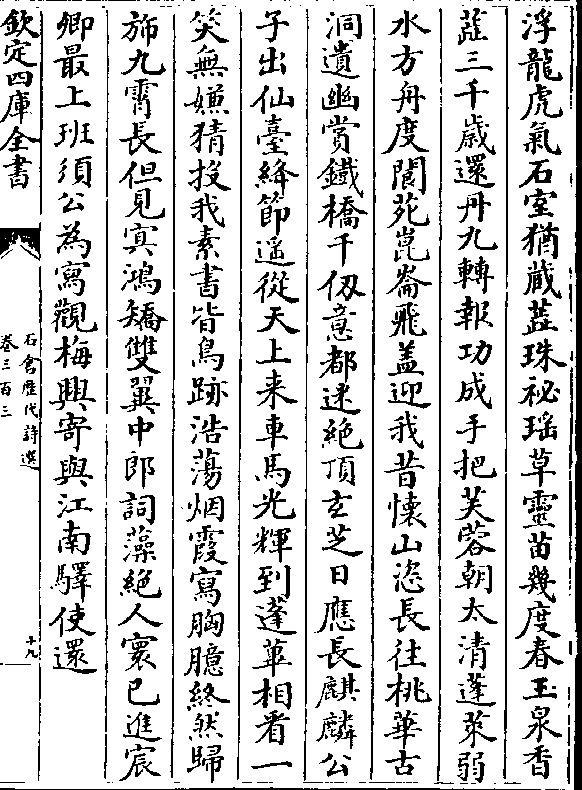 浮龍虎氣石室猶蔵蘂珠祕瑶草靈苗幾度春玉泉香
蘂三千歳還丹九轉報功成手把芙蓉朝太清蓬萊弱
水方舟度閬苑崑崙飛盖迎我昔懐山恣長往桃華古
洞遺幽賞鐵橋千仭意都迷絶頂玄芝日應長麒麟公
子出仙臺絳節遥從天上来車馬光輝到蓬蓽相看一
笑無嫌猜投我素書皆鳥跡浩蕩烟霞寫胸臆終然歸
旆九霄長但見㝠鴻矯雙翼中郎詞藻絶人寰已進宸
卿最上班須公為寫觀梅興寄與江南驛使還
欽定四庫全書
石倉歴代詩選
卷三百三
十九